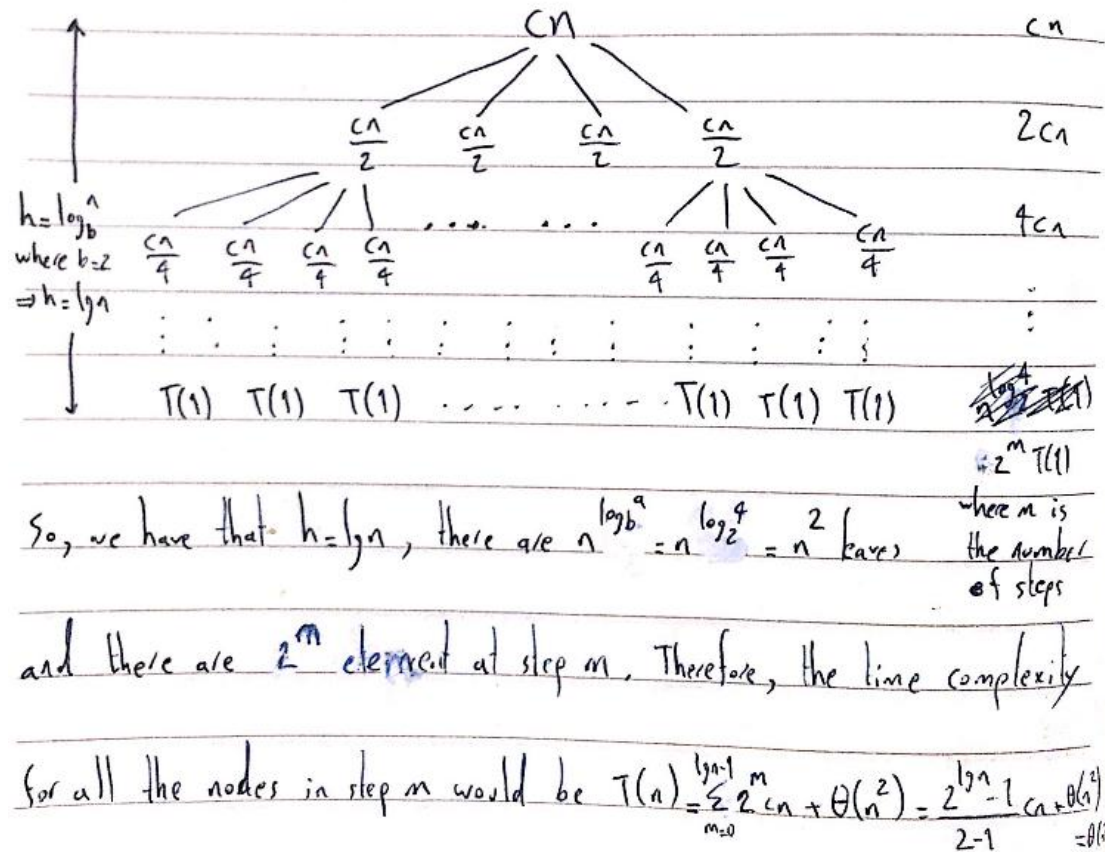 cn cn
cn/2 cn/2 cn/2 cn/2 2cn
h=log_b^n
where b=2
⇒h=lgn
cn/4 cn/4 cn/4 cn/4 .... ... cn/4 cn/4 cn/4 cn/4 4cn
T(1) T(1) T(1) ............ T(1) T(1) T(1)
2^m T(1)
where m is
the number
of steps
So, we have that h=lgn, there are n^(log_b^a) = n^(log_2^4) = n^2 leaves
and there are 2^m element at step m. Therefore, the time complexity
for all the nodes in step m would be T(n) = Σ_{m=0}^{lgn-1} 2^m cn + θ(n^2) = (2^(lgn)-1)/(2-1) cn + θ(n^2)
=θ(